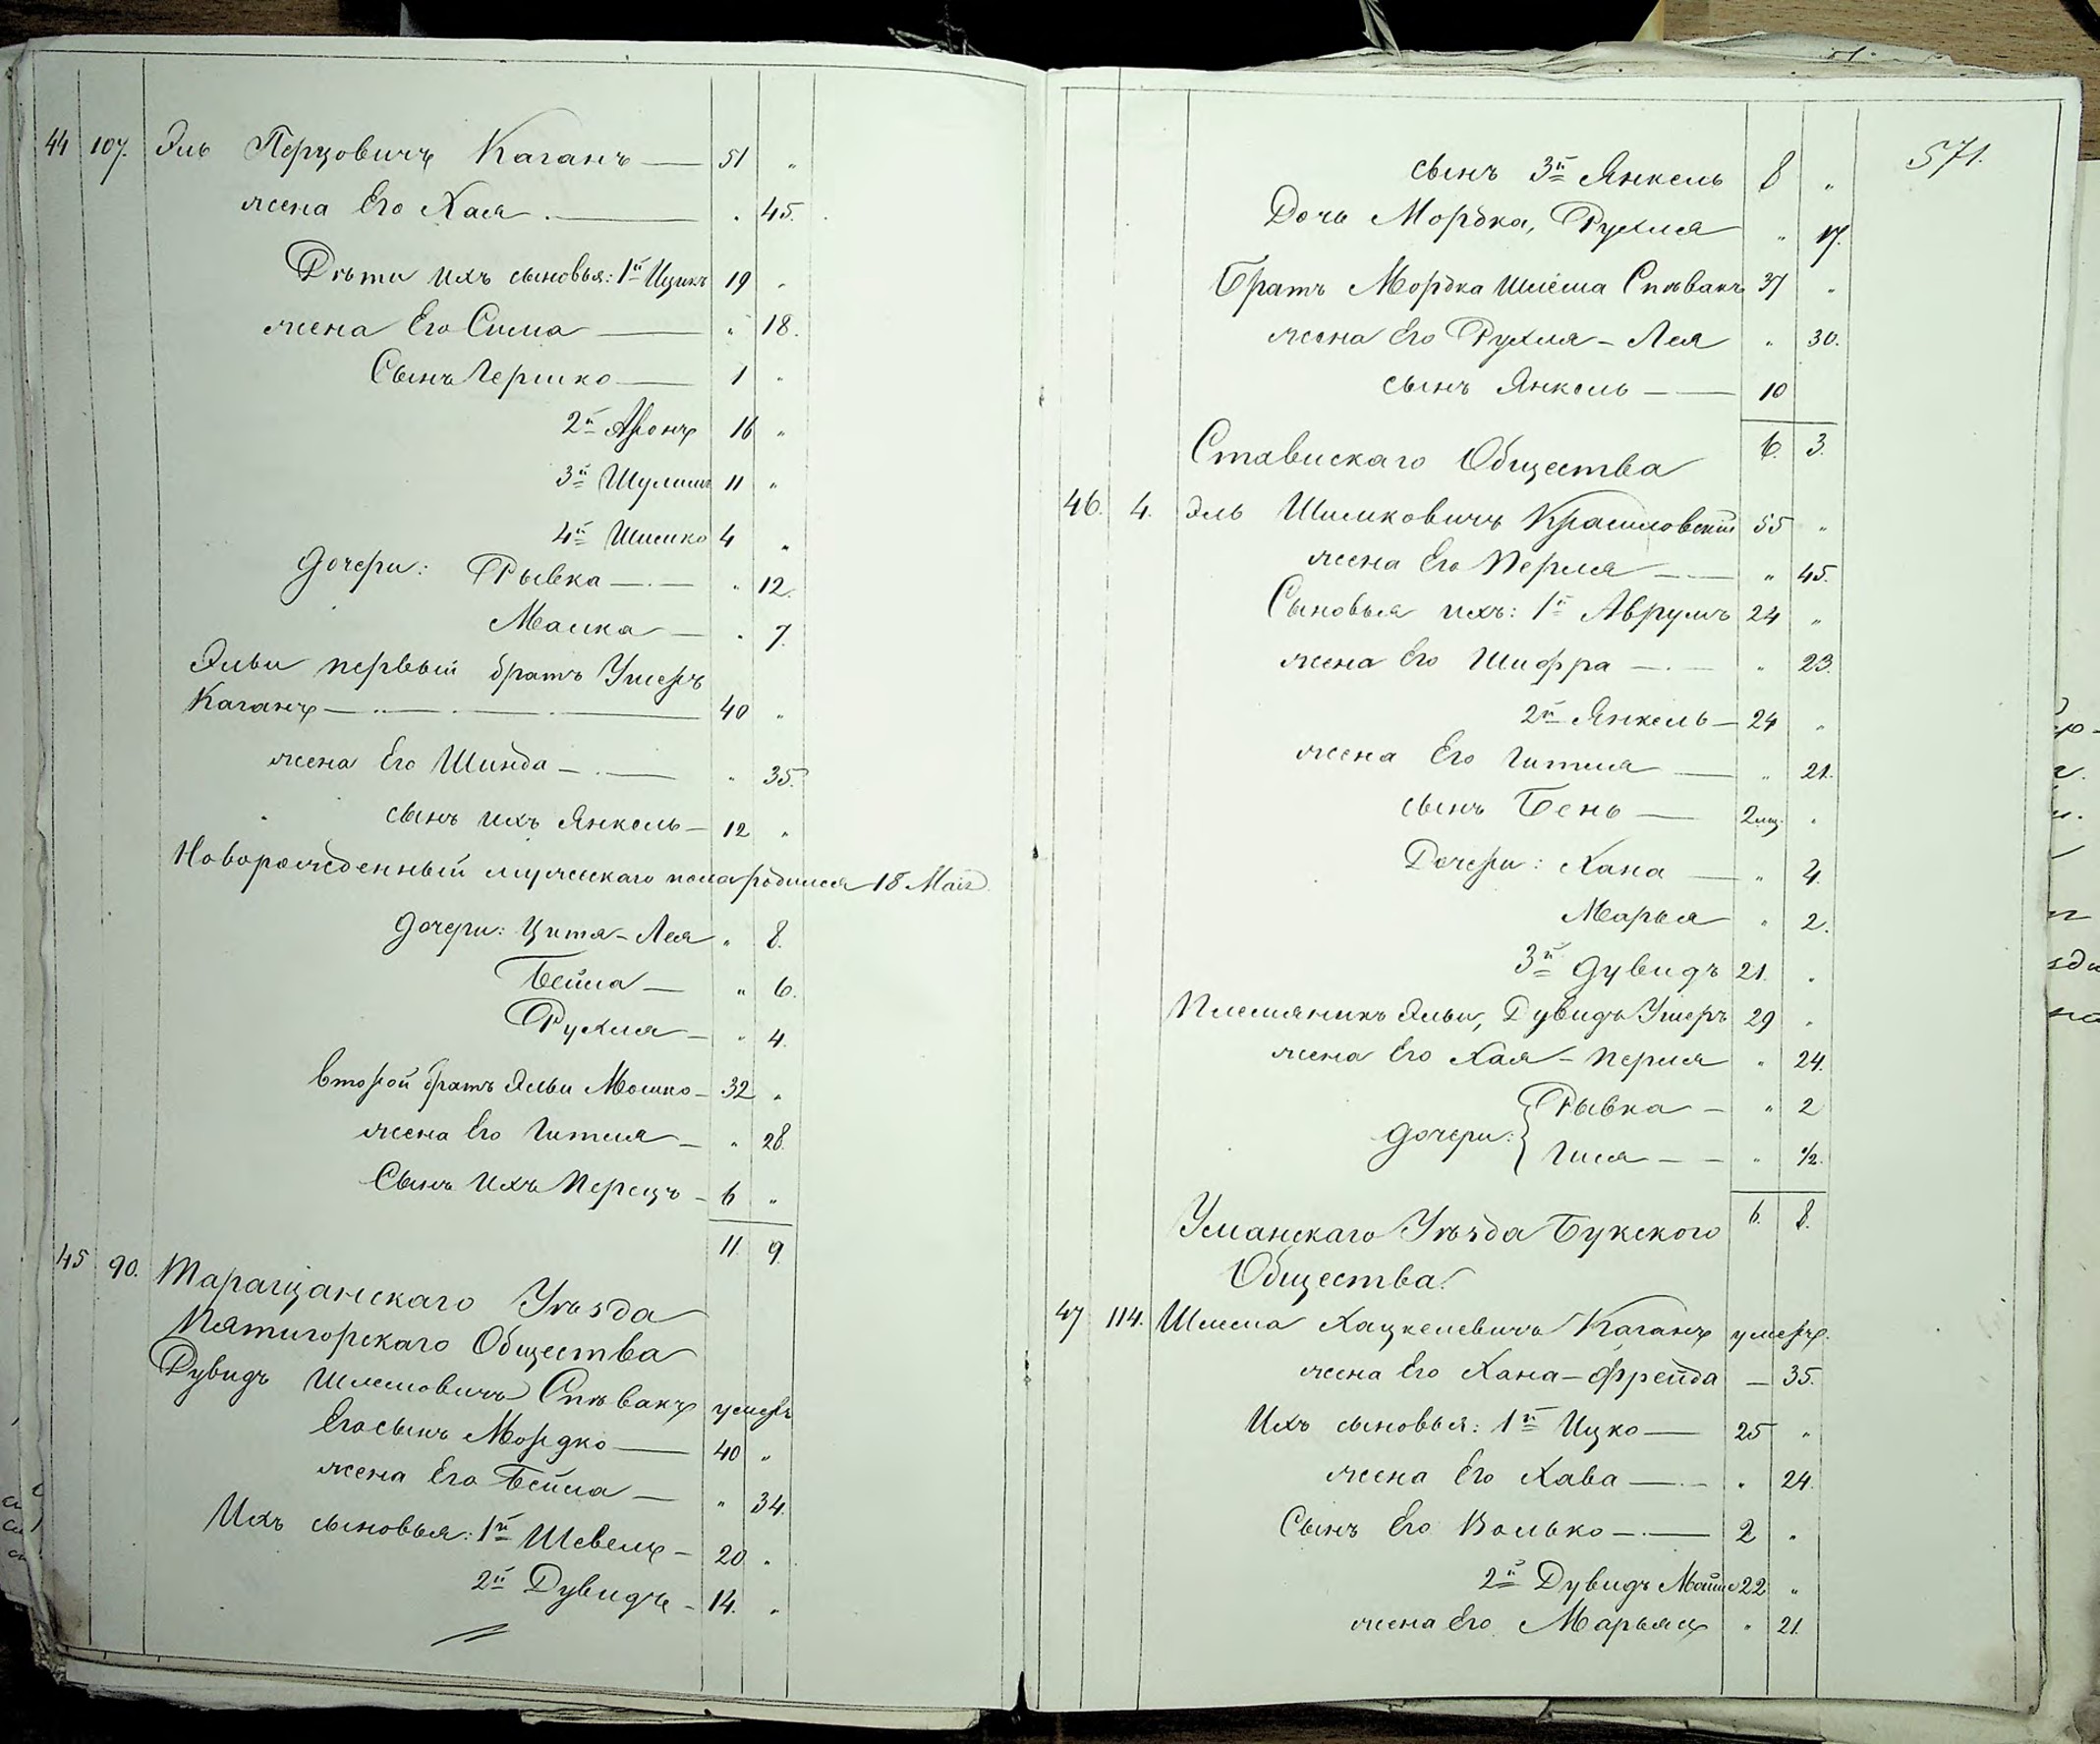 44 107. Эль Перцовичъ Каганъ — 51 "
жена Его Хая . — " 45.
Дѣти ихъ сыновья: 1й Ицикъ 19 "
жена Его Сима — " 18.
Сынъ Гершко — 1 "
2й Аронъ 16 "
3й Шулимъ 11 "
4й Шимко 4 "
Дочери: Рывка — " 12.
Малка — " 7.
Эльи первый братъ Ушеръ
Каганъ — 40 "
жена Его Шинда — " 35.
сынъ ихъ Янкель — 12 "
Новорожденный мужескаго пола родился 18 Мая
Дочери: Цитя-Лея " 8.
Бейла — " 6.
Рухля — " 4.
второй братъ Эльи Мошко — 32 "
жена Его Гитля — " 28.
Сынъ ихъ Перецъ — 6 "
11. 9.
45 90. Таращанскаго Уѣзда
Пятигорскаго Общества
Дувидъ Шлемовичъ Спѣвакъ умеръ
Его сынъ Мордко — 40 "
жена Его Бейла — " 34.
Ихъ сыновья: 1й Шевель — 20 "
2й Дувидъ — 14. "
571.
сынъ 3й Янкель 8 "
Дочь Мордка, Рухля " 17.
Братъ Мордка Шлёма Спѣвакъ 37 "
жена Его Рухля-Лея " 30.
сынъ Янкель — 10
6. 3.
Ставискаго Общества
46. 4. Эль Шимковичъ Красиловскій 55 "
жена Его Перля — " 45.
Сыновья ихъ: 1й Аврумъ 24 "
жена Его Шифра — " 23.
2й Янкель — 24 "
жена Его Гитля — " 21.
сынъ Бень — 2 мц. "
Дочери: Хана — " 4.
Марья " 2.
3й Дувидъ 21. "
Племяникъ Эльи, Дувидъ Ушеръ 29 "
жена Его Хая-Перля " 24.
Дочери: { Рывка — " 2
Гися — — " 1/2.
6. 8.
Уманскаго Уѣзда Букского
Общества.
47 114. Шлема Хацкелевичъ Каганъ умеръ.
жена Его Хана-Фрейда — 35.
Ихъ сыновья: 1й Ицко — 25 "
жена Его Хава — " 24.
Сынъ Его Волько — 2 "
2й Дувидъ Мойше 22 "
жена Его Марьямъ " 21.